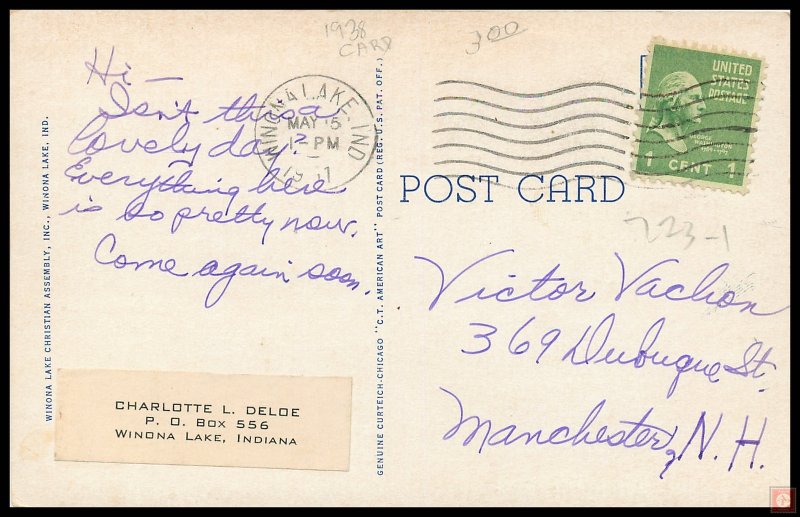 1938
CARD
3.00
Hi —
Isn't this a
lovely day?
Everything here
is so pretty now.
Come again soon.
WINONA LAKE, IND
MAY 5
1 - PM
UNITED
STATES
POSTAGE
GEORGE
WASHINGTON
1 CENT 1
POST CARD
223-1
Victor Vachon
369 Dubuque St.
Manchester, N. H.
WINONA LAKE CHRISTIAN ASSEMBLY, INC., WINONA LAKE, IND.
GENUINE CURTEICH-CHICAGO "C.T. AMERICAN ART" POST CARD (REG. U.S. PAT. OFF.)
CHARLOTTE L. DELOE
P. O. BOX 556
WINONA LAKE, INDIANA